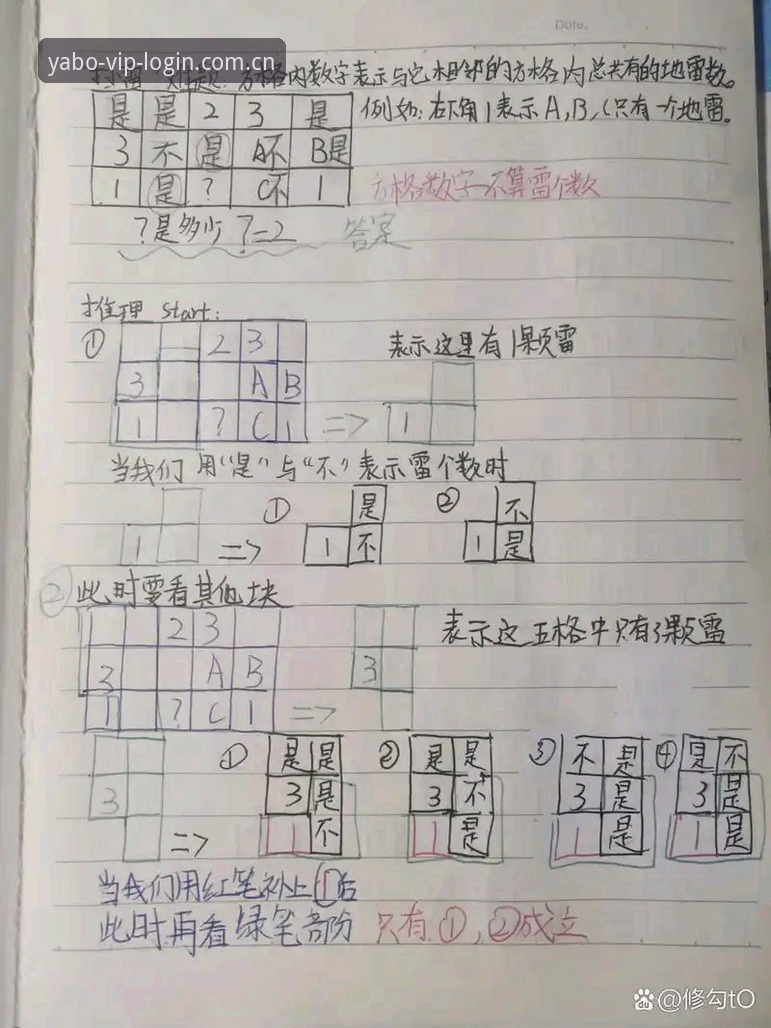 Date.
yabo-vip-login.com.cn
扫雷一难题:方格内数字表示与它相邻的方格内总共有的地雷数。
是 是 2 3 是
例如:右下角1表示A,B,C只有一个地雷。
3 不 是 A不 B是
1 是 ? C不 1
方格数字不算雷个数
?是多少 ?=2 答案
推理 start:
① 2 3
表示这里有1颗雷
3 A B
1 ? C 1 => 1
当我们用“是”与“不”表示雷个数时
① 是 ② 不
1 => 1 不 1 是
② 此时要看其他块
2 3
表示这五格中只有3颗雷
3 A B 3
1 ? C 1 =>
① 是 是 ② 是 是 ③ 不 是 ④ 是 不
3 3 是 3 不 3 是 3 是
=> 1 不 1 是 1 是 1 是
当我们用红笔补上①后
此时再看绿笔部份 只有①,②成立
Bai du @修勾tO